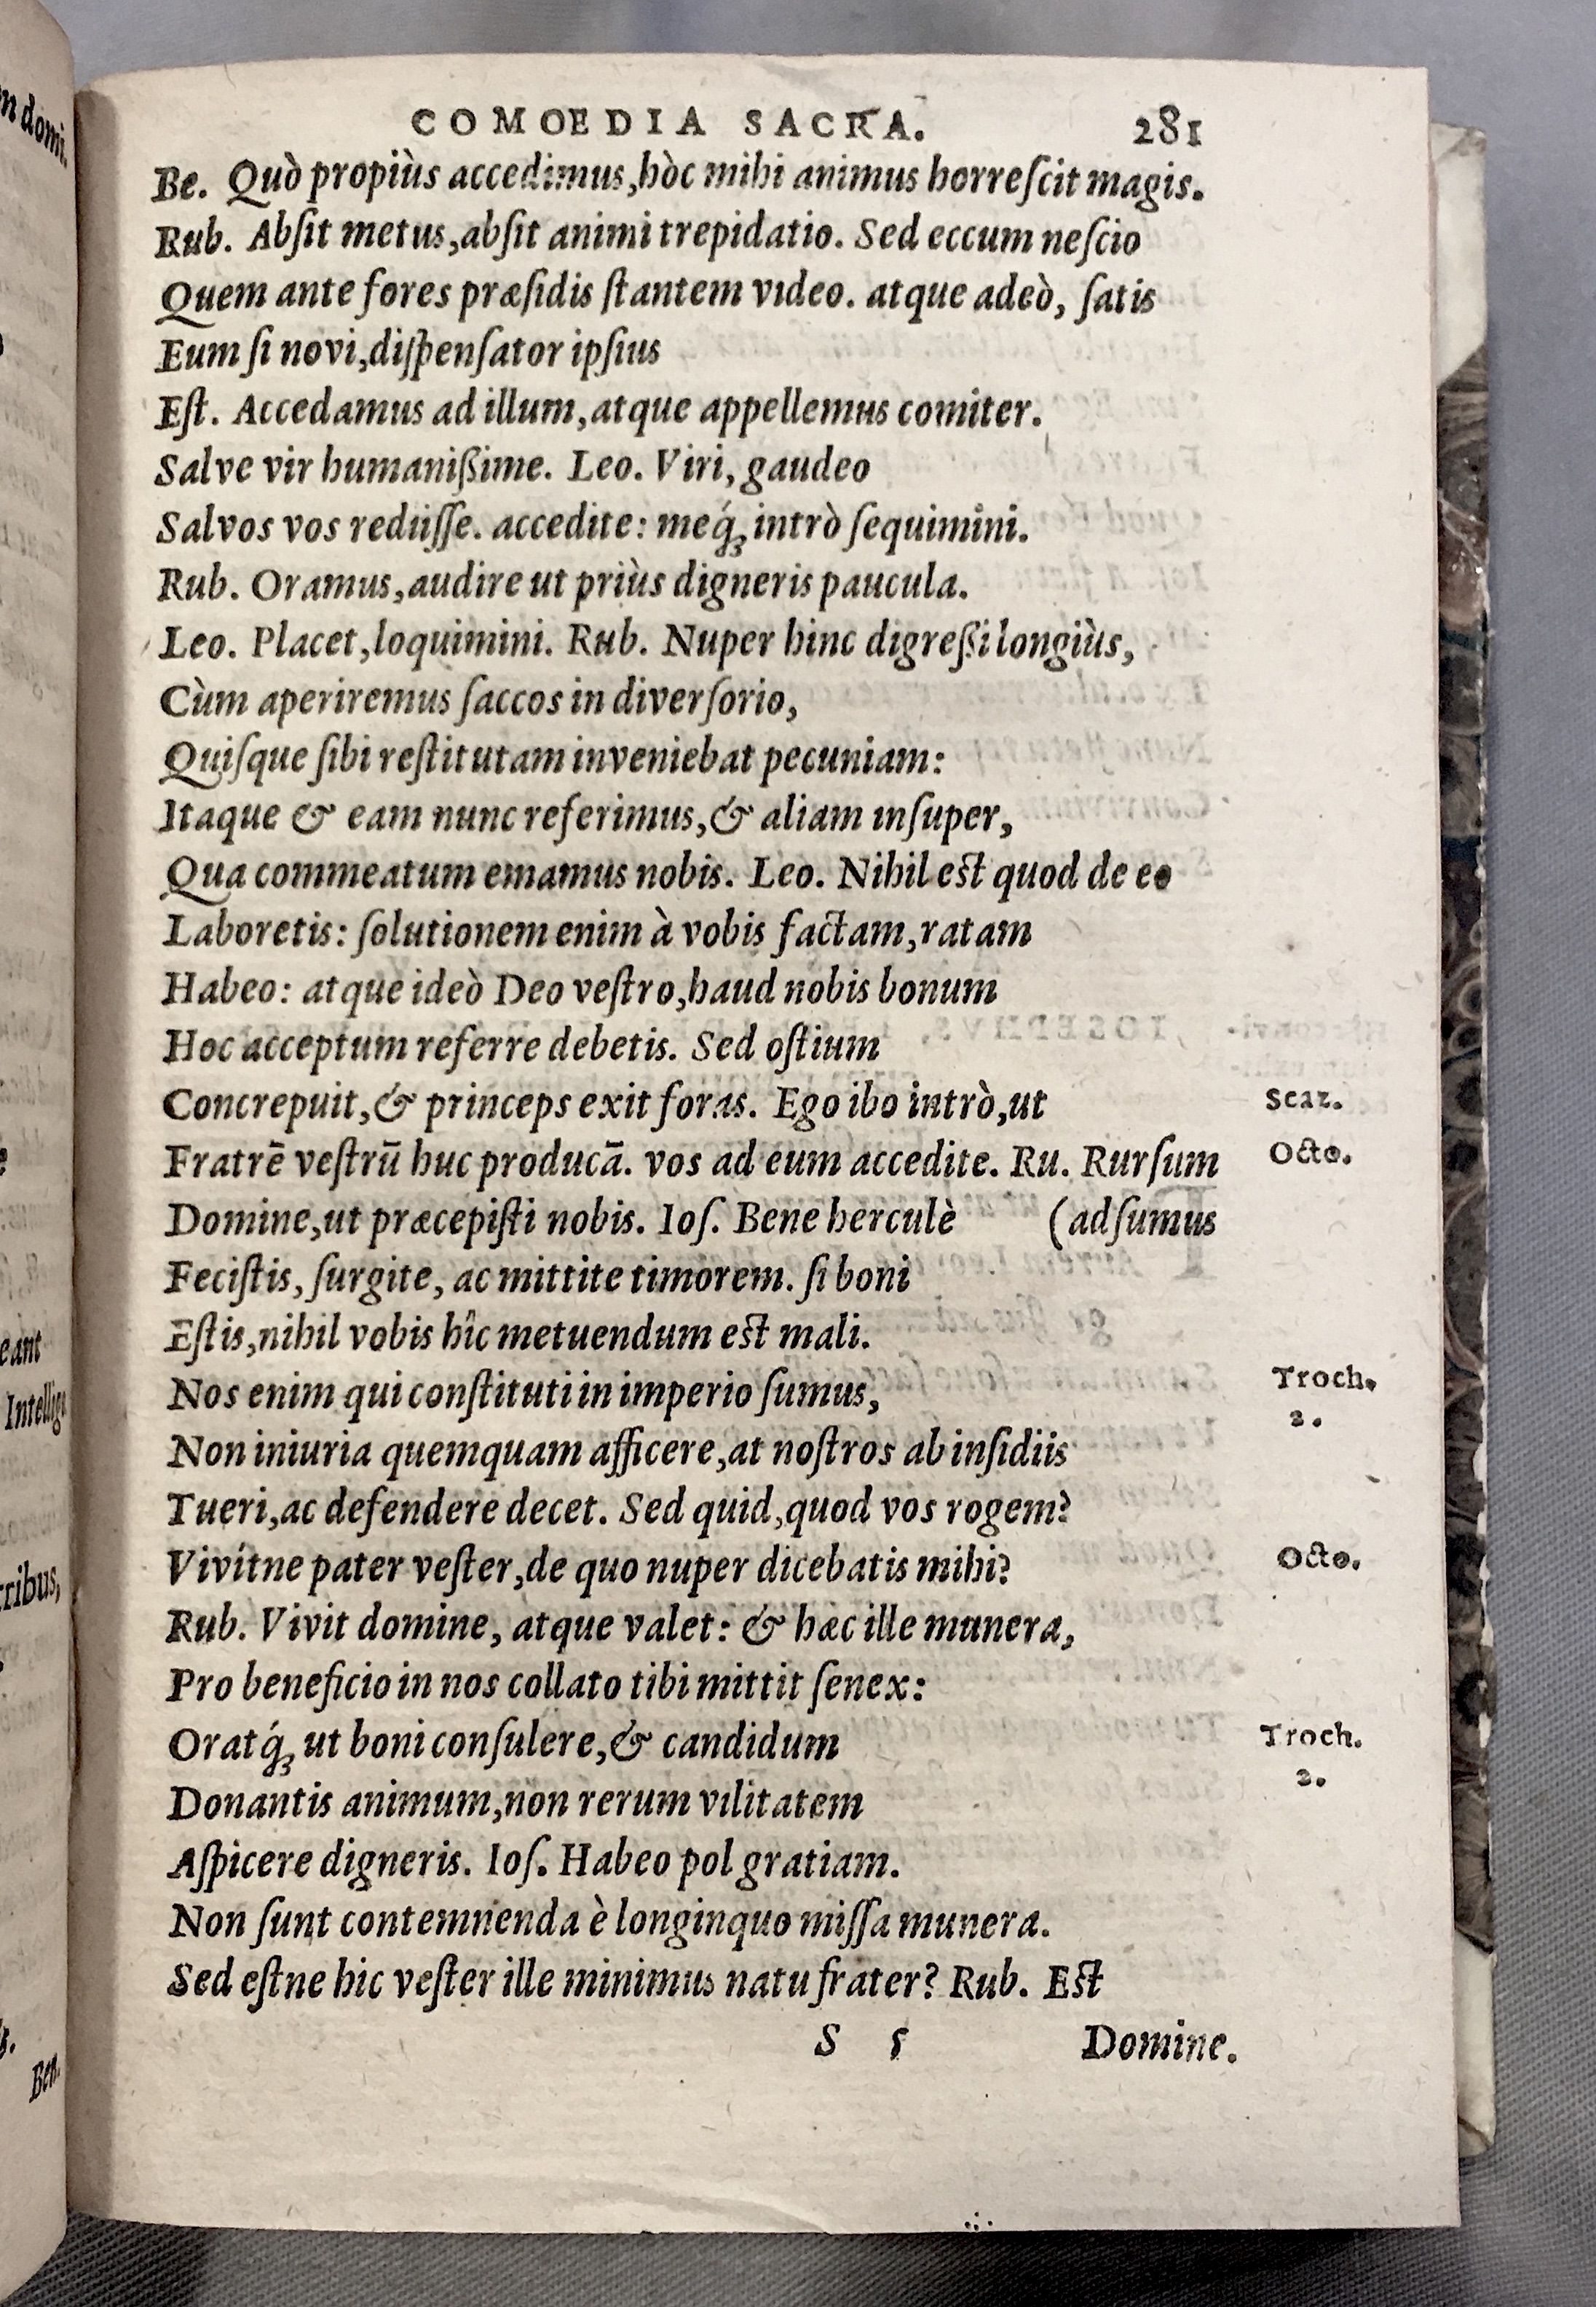 COMOEDIA SACRA. 281
Be. Quò propiùs accedimus, hòc mihi animus horreſcit magis.
Rub. Abſit metus, abſit animi trepidatio. Sed eccum neſcio
Quem ante fores præſidis ſtantem video. atque adeò, ſatis
Eum ſi novi, diſpenſator ipſius
Eſt. Accedamus ad illum, atque appellemus comiter.
Salve vir humanißime. Leo. Viri, gaudeo
Salvos vos rediiſſe. accedite: meq́ꝫ intrò ſequimini.
Rub. Oramus, audire ut priùs digneris paucula.
Leo. Placet, loquimini. Rub. Nuper hinc digreßi longiùs,
Cùm aperiremus ſaccos in diverſorio,
Quiſque ſibi reſtitutam inveniebat pecuniam:
Itaque & eam nunc referimus, & aliam inſuper,
Qua commeatum emamus nobis. Leo. Nihil est quod de eo
Laboretis: ſolutionem enim à vobis factam, ratam
Habeo: atque ideò Deo veſtro, haud nobis bonum
Hoc acceptum referre debetis. Sed oſtium
Concrepuit, & princeps exit foras. Ego ibo intrò, ut Scaz.
Fratrē veſtrū huc producā. vos ad eum accedite. Ru. Rurſum Octo.
Domine, ut præcepiſti nobis. Ioſ. Bene herculè (adſumus
Feciſtis, ſurgite, ac mittite timorem. ſi boni
Eſtis, nihil vobis hîc metuendum est mali.
Nos enim qui conſtituti in imperio ſumus, Troch.
2.
Non iniuria quemquam afficere, at noſtros ab inſidiis
Tueri, ac defendere decet. Sed quid, quod vos rogem?
Vivítne pater veſter, de quo nuper dicebatis mihi? Octo.
Rub. Vivit domine, atque valet: & hæc ille munera,
Pro beneficio in nos collato tibi mittit ſenex:
Oratq́ꝫ ut boni conſulere, & candidum Troch.
2.
Donantis animum, non rerum vilitatem
Aſpicere digneris. Ioſ. Habeo pol gratiam.
Non ſunt contemnenda è longinquo miſſa munera.
Sed eſtne hic veſter ille minimus natu frater? Rub. Est
S 5 Domine.